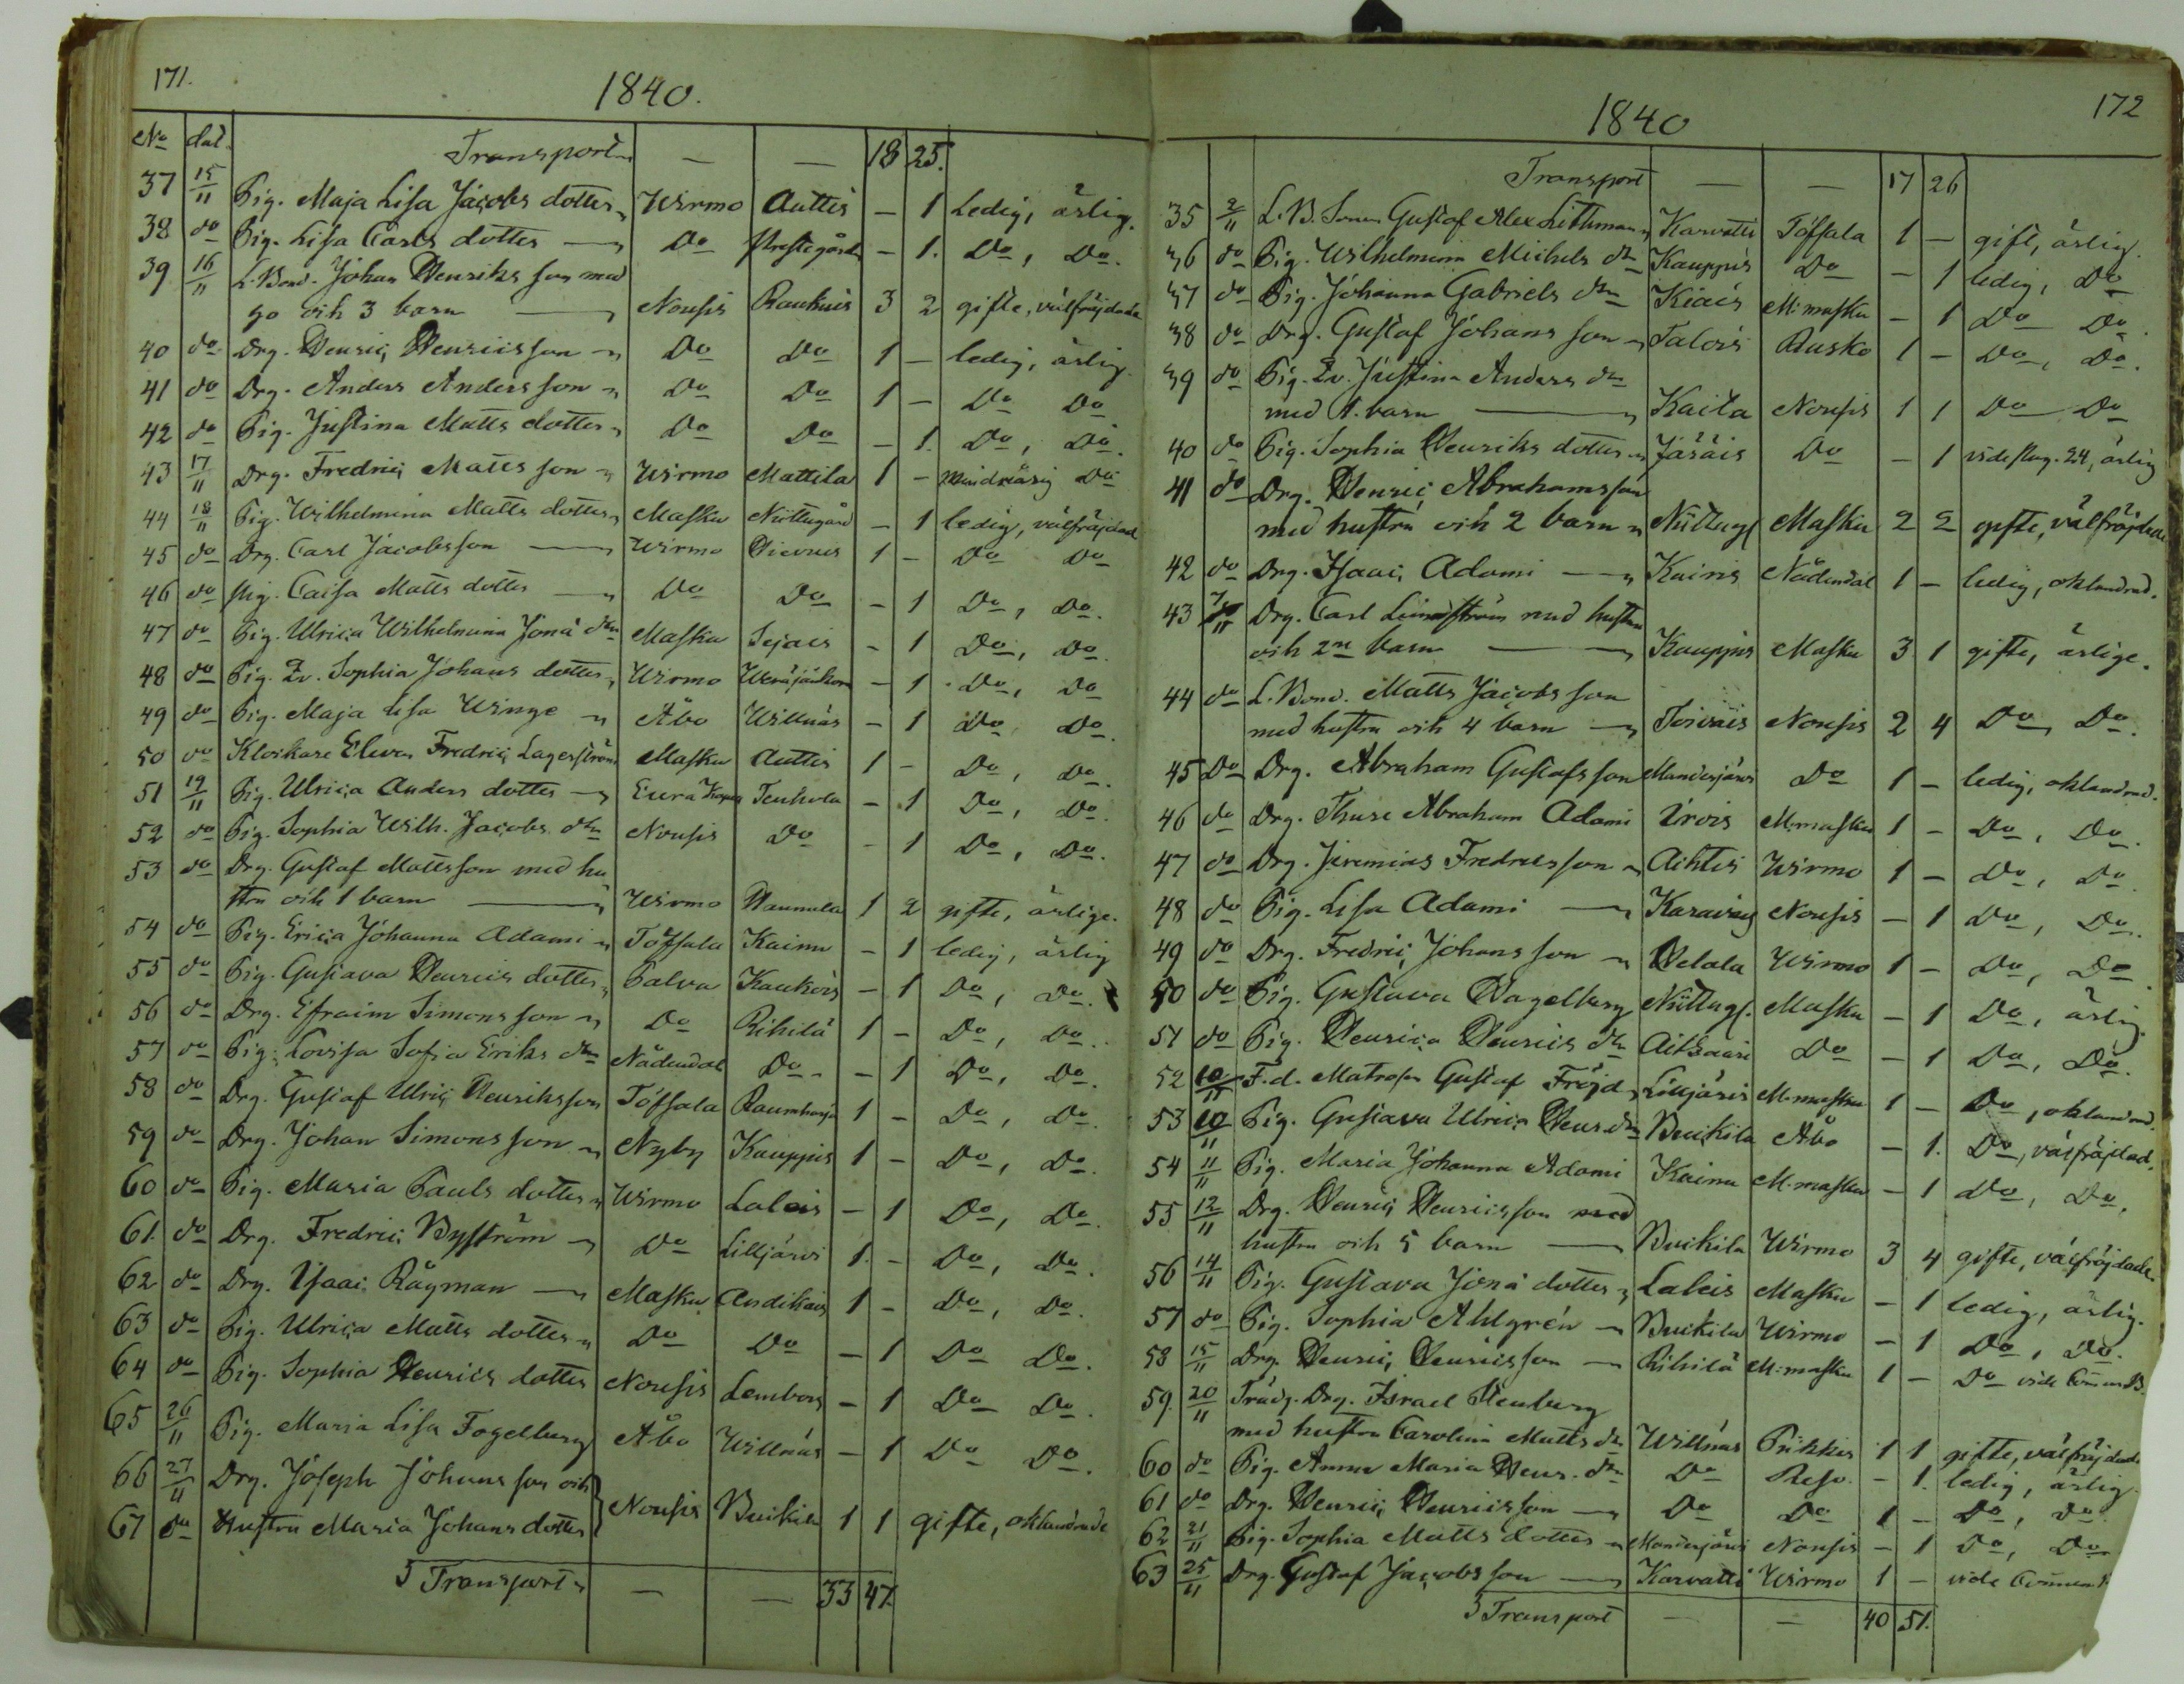 171.
1840.
No dat.
Transport — — 18 25.
37 15/11 Pig. Maja Lisa Jacobs dotter Wirmo Auttis – 1 Ledig, ärlig.
38 do Pig. Lisa Carls dotter — Do Prestegård – 1. Do, Do.
39 16/11 L. Bond. Johan Henriks son med
go och 3 barn — Nousis Raukuis 3 2 gifte, välfräjdade
40 do Drg. Henric Henricsson Do Do 1 – ledig, ärlig
41 do Drg. Anders Andersson Do Do 1 – Do Do
42 do Pig. Justina Matts dotter Do Do – 1. Do, Do.
43 17/11 Drg. Fredric Matts son Wirmo Mattila 1 – Mindreårig Do
44 18/11 Pig. Wilhelmina Matts dotter Masku Niittugård – 1 ledig, välfräjdad
45 do Drg. Carl Jacobsson — Wirmo 1 – Do Do
46 do Pig. Caisa Matts dotter — Do Do – 1 Do, Do.
47 do Pig. Ulrica Wilhelmina Jona dtr Masku Sejais – 1 Do, Do.
48 do Pig. Sophia Johans dotter Wirmo – 1 Do, Do
49 do Pig. Maja Lisa Winge Åbo Willnäs – 1 Do Do.
50 do Klockare Eleven Fredric Lagerström Masku Auttis 1 – Do, Do.
51 19/11 Pig. Ulrica Anders dotter Eura Tenhola – 1 Do, Do.
52 do Pig. Sophia Wilh. Jacobs dtr Nousis Do – 1 Do, Do.
53 do Drg. Gustaf Mattsson med hu
stru och 1 barn — Wirmo Nannula 1 2 gifte, ärlige.
54 do Pig. Erica Johanna Adami Töfsala Kainu – 1 ledig, ärlig
55 do Pig. Gustava Henrics dotter Palva Kaukois – 1 Do, Do.
56 do Drg. Efraim Simons son Do Rihilä 1 – Do, Do.
57 do Pig. Lovisa Sofia Eriks dtr Nådendal Do – 1 Do, Do.
58 do Drg. Gustaf Ulric Henriksson Töfsala Raumharja 1 – Do, Do.
59 do Drg. Johan Simons son Nyby Kauppis 1 – Do, Do.
60 do Pig. Maria Pauls dotter Wirmo Laleis – 1 Do, Do.
61. do Drg. Fredric Byström Do Lilljärvi 1. – Do, Do.
62 do Drg. Isaac Rågman — Masku Andikais 1 – Do, Do.
63 do Pig. Ulrica Matts dotter Do Do – 1 Do Do.
64 do Pig. Sophia Henrics dotter Nousis Lembois – 1 Do Do.
65 26/11 Pig. Maria Lisa Fogelberg Åbo Willnäs – 1 Do Do.
66 27/11 Drg. Joseph Johans son och
67 do Hustru Maria Johans dotter Nousis Buikila 1 1 gifte, oklandrade
Transport — — 33 47.
172
1840
Transport — — 17 26
35 2/11 L. B. Sonen Gustaf Alex Lithman Karvatti Töfsala 1 – gift, ärlig.
36 do Pig. Wilhelmina Michels dtr Kauppis Do – 1 ledig, Do
37 do Pig. Johanna Gabriels dtr Kiais M:masku – 1 Do Do.
38 do Drg. Gustaf Johans son Talois Rusko 1 – Do, Do.
39 do Pig. Justina Anders dtr
med 1. barn — Kaita Nousis 1 1 Do Do
40 do Pig. Sophia Henriks dotter Jääis Do – 1 vide pag. 24, ärlig
41 do Drg. Henric Abrahamsson
med hustru och 2 barn Niittug Masku 2 2 gifte, välfräjdade
42 do Drg. Isaac Adami — Kairis Nådendal 1 – ledig, oklandrad.
43 7/11 Drg. Carl Lindström med hustru
och 2ne barn — Kauppis Masku 3 1 gifte, ärlige.
44 do L. Bond. Matts Jacobs son
med hustru och 4 barn Toivais Nousis 2 4 Do, Do.
45 Do Drg. Abraham Gustafs son Manderjärvi Do 1 – ledig, oklandrad.
46 do Drg. Thure Abraham Adami M:masku 1 – Do, Do.
47 do Drg. Jeremias Fredricsson Aihtis Wirmo 1 – Do, Do.
48 do Pig. Lisa Adami — Nousis – 1 Do, Do.
49 do Drg. Fredric Johans son Velala Wirmo 1 – Do, Do.
50 do Pig. Gustava Hagelberg Niittug. Masku – 1 Do, ärlig.
51 do Pig. Henrica Henrics dtr Aitsaari Do – 1 Do, Do.
52 10/11 F. d. Matrosen Gustaf Fröjd Lilljärvi M:masku 1 – Do, oklandrad.
53 10/11 Pig. Gustava Ulrica Henr. dtr Buikila Åbo – 1. Do, välfräjdad.
54 11/11 Pig. Maria Johanna Adami Kainu M:masku – 1 Do, Do.
55 12/11 Drg. Henric Henricsson med
hustru och 5 barn — Buikila Wirmo 3 4 gifte, välfräjdade.
56 14/11 Pig. Gustava Jona dotter Laleis Masku – 1 ledig, ärlig.
57 do Pig. Sophia Ahlgrén Buikila Wirmo – 1 Do, Do.
58 15/11 Drg. Henric Henricsson — Rihilä M:masku 1 – Do vide
59. 20/11 Trädg. Drg. Israel Stenberg
med hustru Carolina Matts dtr Willnäs Pikkis 1 1 gifte, välfräjdade
60 do Pig. Anna Maria Henr. dtr Do Reso. – 1. ledig, ärlig.
61 do Drg. Henric Henricsson — Do Do 1 – Do, Do.
62 21/11 Pig. Sophia Matts dotter Manderjärvi Nousis – 1 Do, Do
63 25/11 Drg. Gustaf Jacobs son — Karvatti Wirmo 1 – vide
Transport — — 40 51.